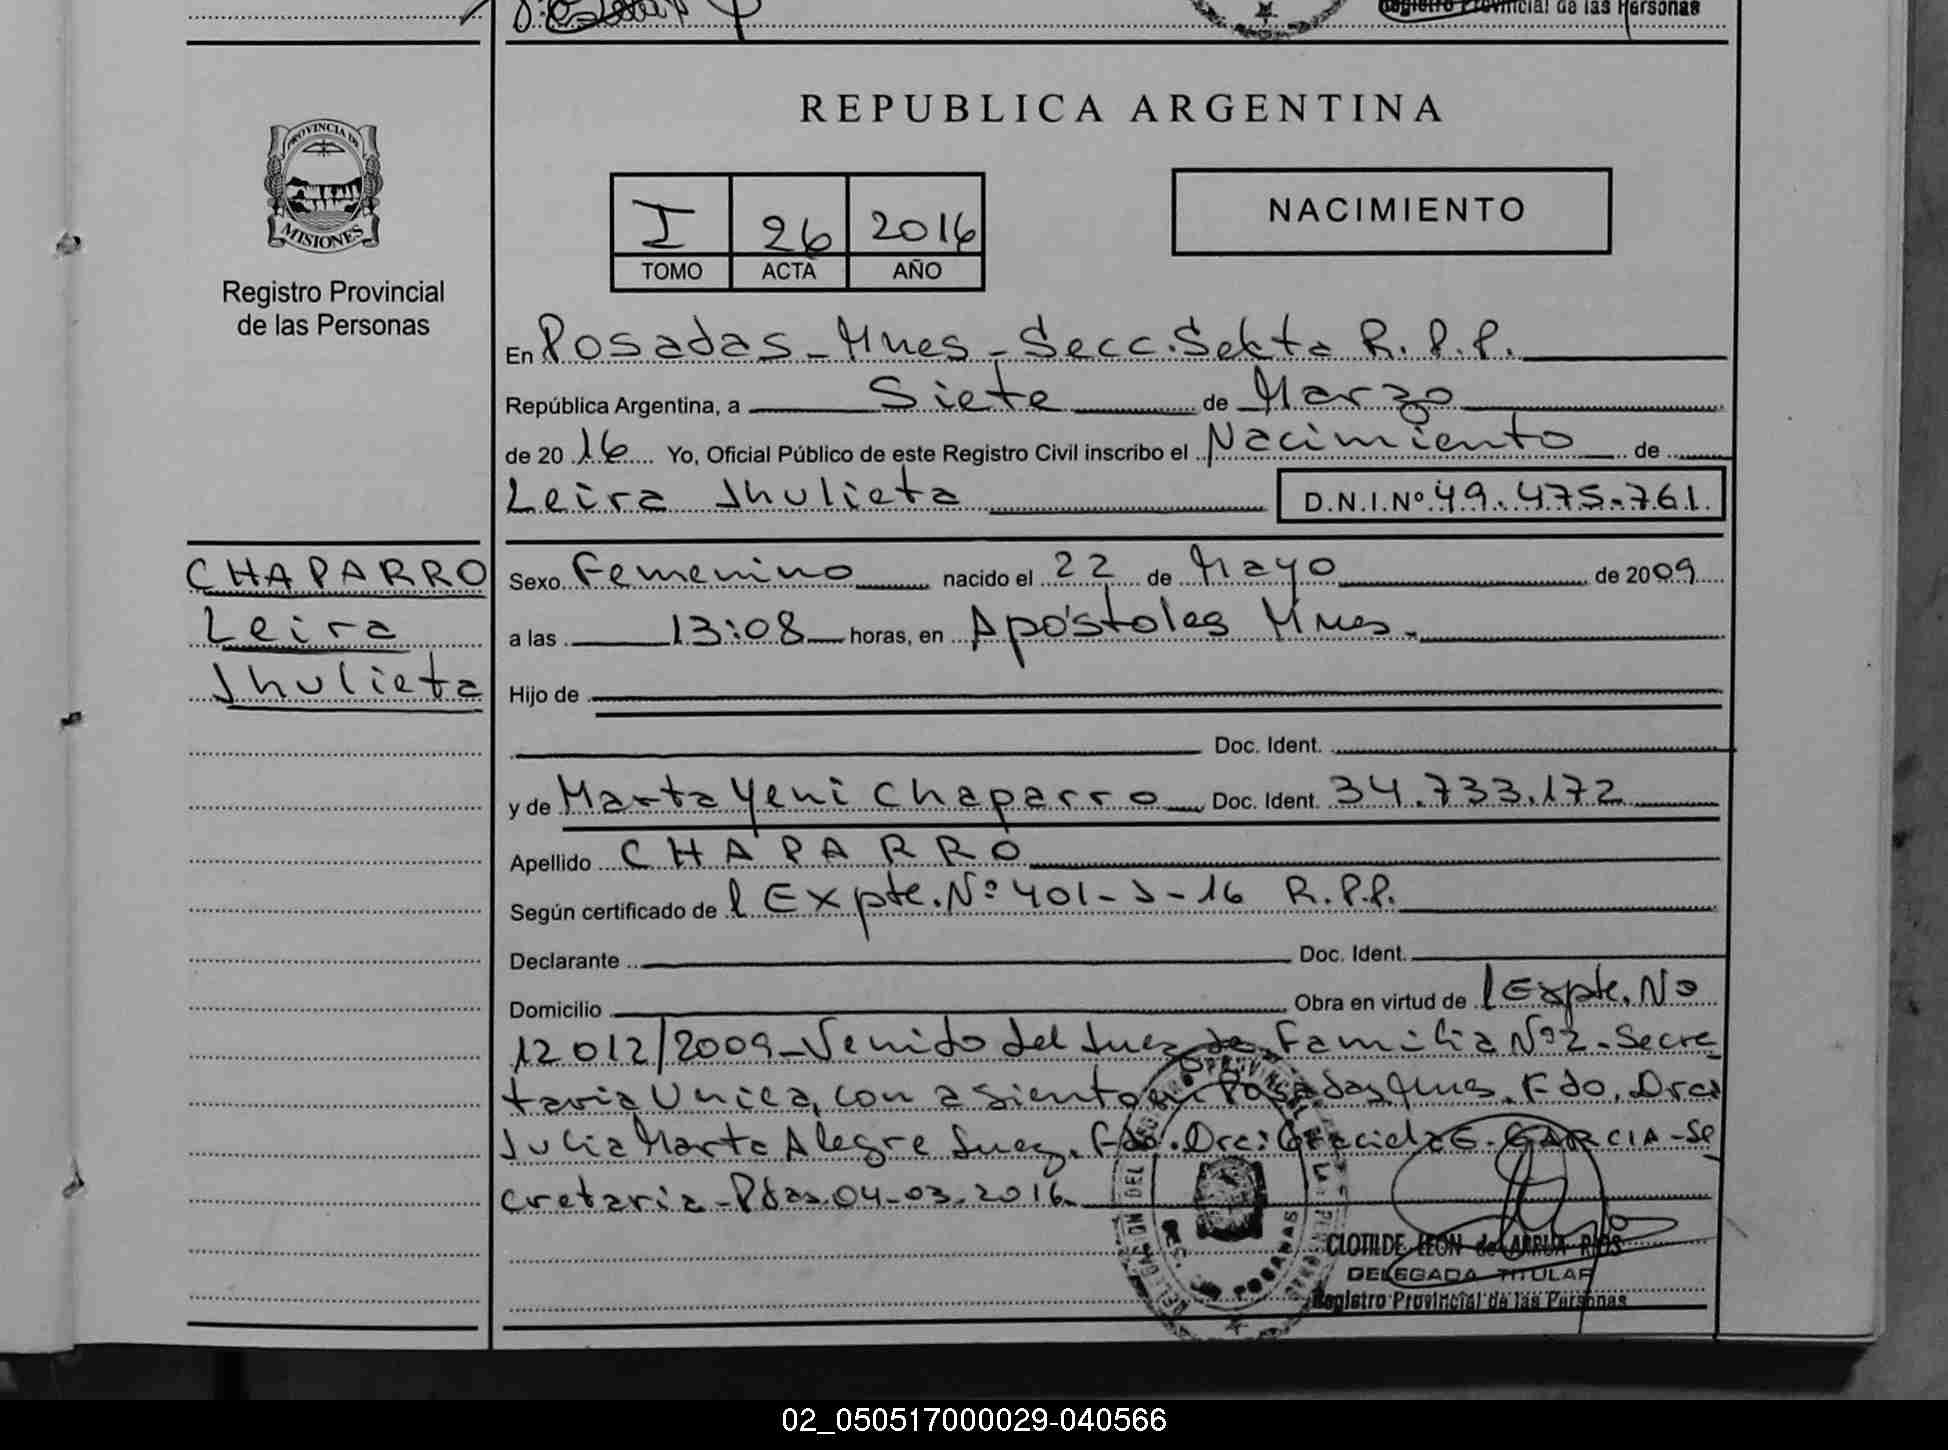 Registro Provincial de las Personas
PROVINCIA DE
MISIONES
Registro Provincial
de las Personas
REPUBLICA ARGENTINA
I 26 2016
TOMO ACTA AÑO
NACIMIENTO
En Posadas - Mnes - Secc. Sexta R.P.P.
República Argentina, a Siete de Marzo
de 2016 Yo, Oficial Público de este Registro Civil inscribo el Nacimiento de
Leira Jhulieta D.N.I.Nº 49.475.761
CHAPARRO
Leira
Jhulieta
Sexo Femenino nacido el 22 de Mayo de 2009
a las 13:08 horas, en Apóstoles Mnes.
Hijo de
Doc. Ident.
y de Marta Yeni Chaparro Doc. Ident. 34.733.172
Apellido CHAPARRO
Según certificado de l Expte. Nº 401-J-16 R.P.P.
Declarante Doc. Ident.
Domicilio Obra en virtud de l Expte. No
12012/2009 - Venido del Juez de Familia Nº 2 - Secre
taria Unica, con asiento en Posadas, Mnes. Fdo. Dra:
Julia Marta Alegre Juez. Fdo. Dra: Graciela E. GARCIA - Se
cretaria - Pdas. 04-03-2016
CLOTILDE LEON de ARRUA RIOS
DELEGADA TITULAR
Registro Provincial de las Personas
02_050517000029-040566